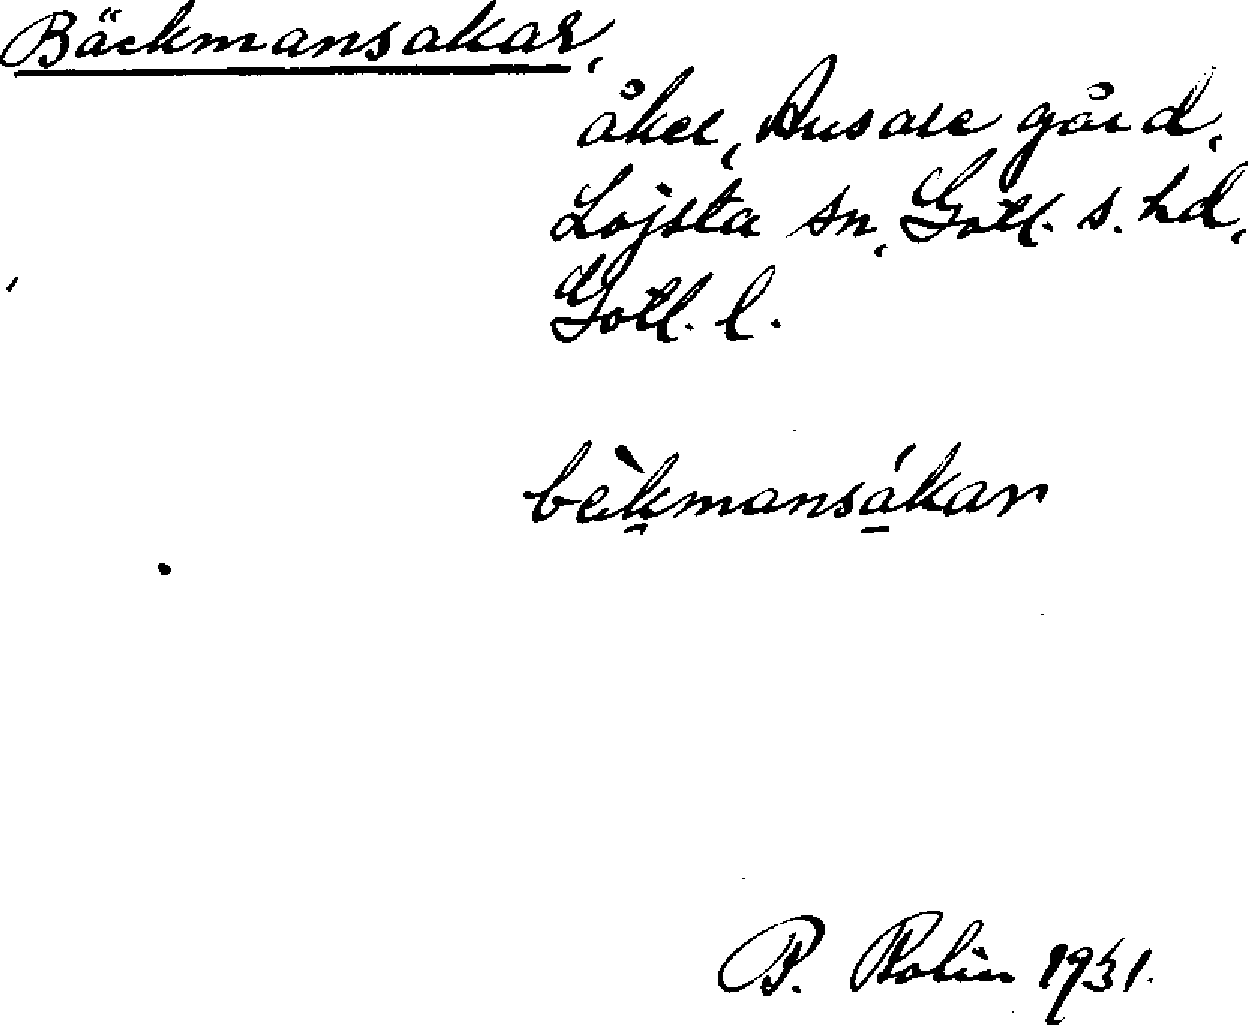 Bäckmansakar,
åker, Husare gård,
Lojsta sn, Gotl. s. hd,
Gotl. l.
bèkmansákar
P. Rolin 1931.